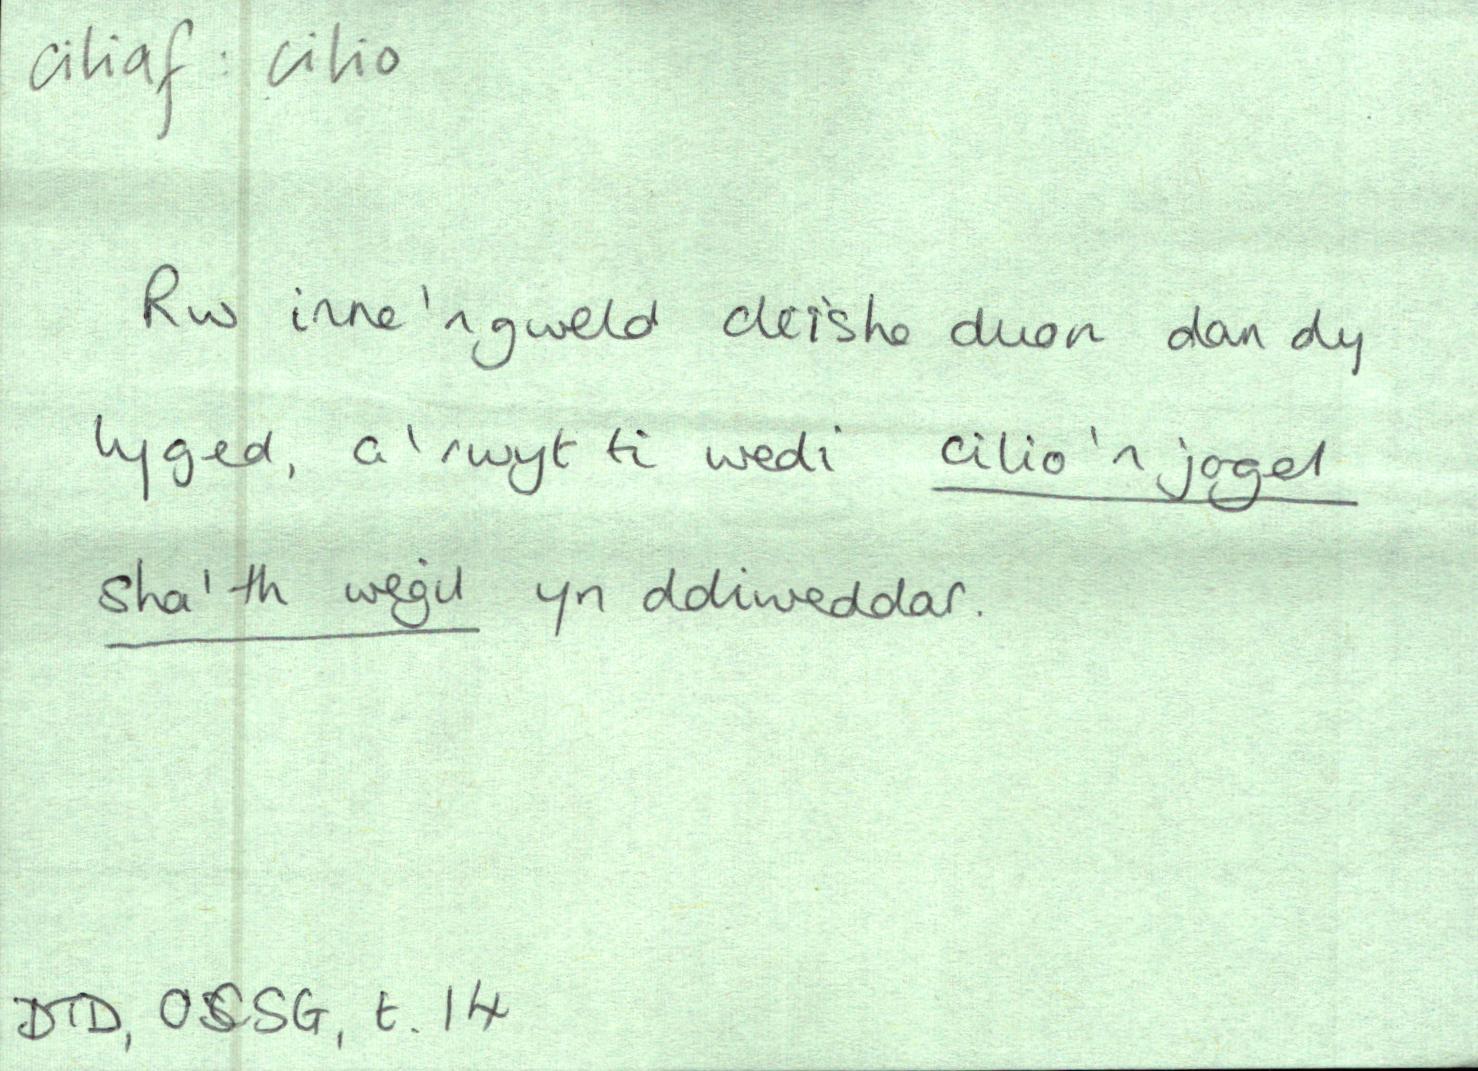 ciliaf : cilio
Rw inne'n gweld cleishe duon dan dy
lyged, a'rwyt ti wedi cilio'n jogel
sha'th wegil yn ddiweddar.
DTD, OSSG, t. 14